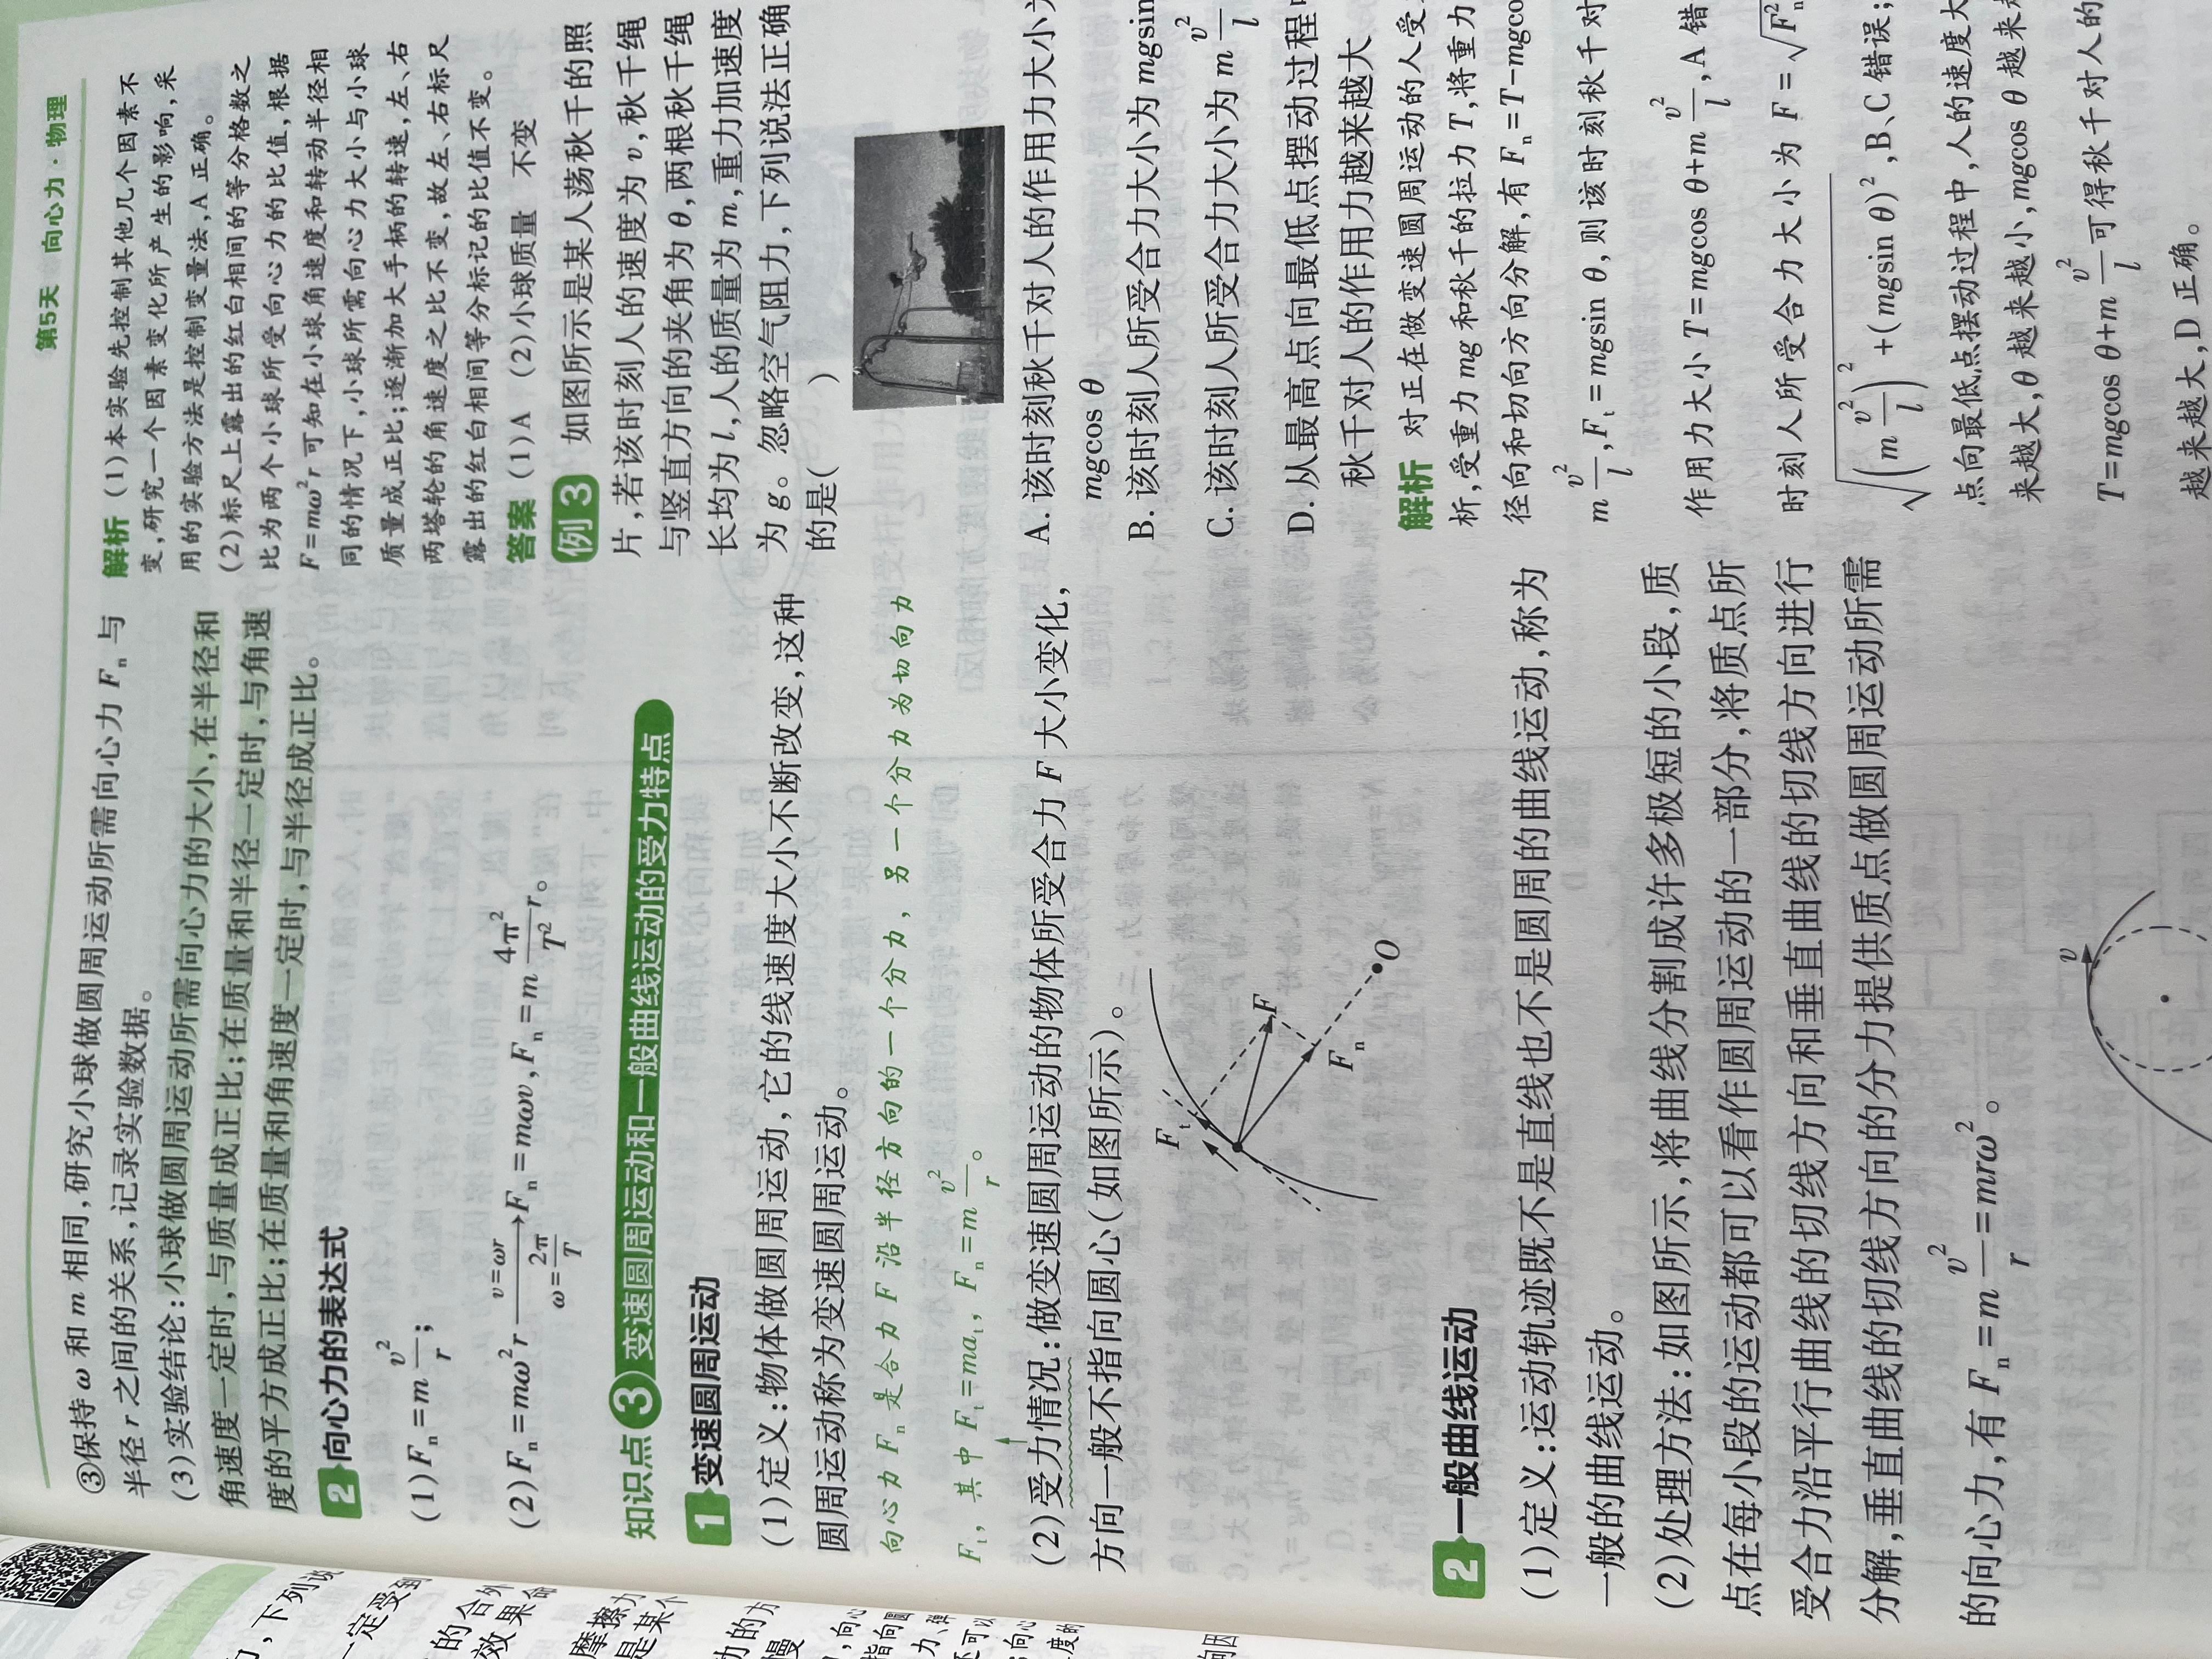 第5天 向心力·物理
③保持 ω 和 m 相同,研究小球做圆周运动所需向心力 Fₙ 与
半径 r 之间的关系,记录实验数据。
(3)实验结论:小球做圆周运动所需向心力的大小,在半径和
角速度一定时,与质量成正比;在质量和半径一定时,与角速
度的平方成正比;在质量和角速度一定时,与半径成正比。
2 向心力的表达式
(1)Fₙ=m v²/r;
(2)Fₙ=mω²r —v=ωr, ω=2π/T→ Fₙ=mωv,Fₙ=m 4π²/T² r。
知识点3 变速圆周运动和一般曲线运动的受力特点
1 变速圆周运动
(1)定义:物体做圆周运动,它的线速度大小不断改变,这种
圆周运动称为变速圆周运动。
向心力 Fₙ 是合力 F 沿半径方向的一个分力,另一个分力为切向力
Fₜ,其中 Fₜ=maₜ,Fₙ=m v²/r。
(2)受力情况:做变速圆周运动的物体所受合力 F 大小变化,
方向一般不指向圆心(如图所示)。
Fₜ
F
Fₙ
O
2 一般曲线运动
(1)定义:运动轨迹既不是直线也不是圆周的曲线运动,称为
一般的曲线运动。
(2)处理方法:如图所示,将曲线分割成许多极短的小段,质
点在每小段的运动都可以看作圆周运动的一部分,将质点所
受合力沿平行曲线的切线方向和垂直曲线的切线方向进行
分解,垂直曲线的切线方向的分力提供质点做圆周运动所需
的向心力,有 Fₙ=m v²/r=mrω²。
v
解析 (1)本实验先控制其他几个因素不
变,研究一个因素变化所产生的影响,采
用的实验方法是控制变量法,A 正确。
(2)标尺上露出的红白相间的等分格数之
比为两个小球所受向心力的比值,根据
F=mω²r 可知在小球角速度和转动半径相
同的情况下,小球所需向心力大小与小球
质量成正比;逐渐加大手柄的转速,左、右
两塔轮的角速度之比不变,故左、右标尺
露出的红白相间等分标记的比值不变。
答案 (1)A (2)小球质量 不变
例3 如图所示是某人荡秋千的照
片,若该时刻人的速度为 v,秋千绳
与竖直方向的夹角为 θ,两根秋千绳
长均为 l,人的质量为 m,重力加速度
为 g。忽略空气阻力,下列说法正确
的是( )
A. 该时刻秋千对人的作用力大小为
mgcos θ
B. 该时刻人所受合力大小为 mgsin
C. 该时刻人所受合力大小为 m v²/l
D. 从最高点向最低点摆动过程
秋千对人的作用力越来越大
解析 对正在做变速圆周运动的人受
析,受重力 mg 和秋千的拉力 T,将重力
径向和切向方向分解,有 Fₙ=T-mgco
m v²/l,Fₜ=mgsin θ,则该时刻秋千对
作用力大小 T=mgcos θ+m v²/l,A 错
时刻人所受合力大小为 F=√Fₙ²
√((m v²/l)²+(mgsin θ)²),B、C 错误;
点向最低点摆动过程中,人的速度大
来越大,θ 越来越小,mgcos θ 越来
T=mgcos θ+m v²/l 可得秋千对人的
越来越大,D 正确。
力,下列说
一定受到
的合外
效果命
摩擦力
是某个
动的方
慢
,向心
指向圆
力、弹
还可以
向心
度的
向因